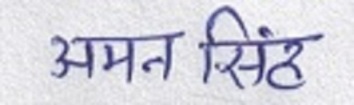 अमन सिंह